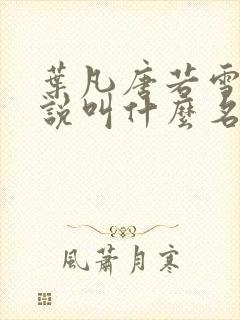 葉凡唐若雪
說叫什麼名
風蕭月寒